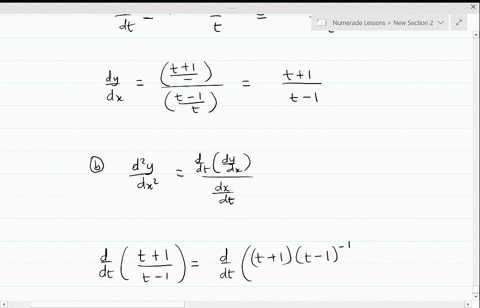 Numerade Lessons > New Section 2
dt = t =
dy/dx = ((t+1)/–)/((t-1)/t) = (t+1)/(t-1)
(b) d²y/dx² = (d/dt(dy/dx))/(dx/dt)
d/dt((t+1)/(t-1)) = d/dt((t+1)(t-1)⁻¹